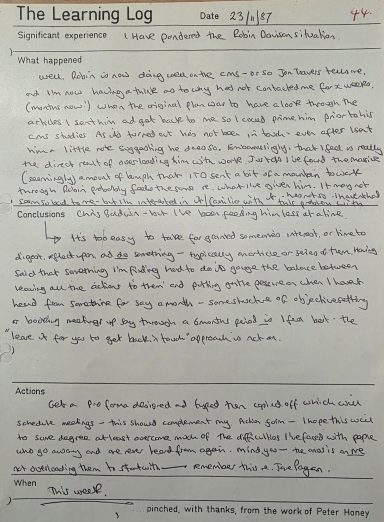 The Learning Log Date 23/11/87 44.
Significant experience I Have pondered the Robin Davison situation.
What happened
Well Robin is now doing well on the cms - or so Jon Travers tells me,
and I'm now having a think as to why he'd not contacted me for x weeks,
(months now!) when the original plan was to have a look through the
articles I sent him and get back to me so I could prime him prior to his
CMS studies. As it turned out he's not been in touch - even after I sent
him a little note suggesting he does so. Embarrassingly, that I feel is really
the direct result of overloading him with work. Just as I've found the massive
(seemingly) amount of bumph that ITD sent a bit of a mountain to work
through Robin probably feels the same re. what I've given him. It may not
seem so bad to me - but I'm interested in it/familiar with it - he's not so I have had
this problem with
Conclusions Chris Baldwin - but I've been feeding him less at a time.
It's too easy to take for granted someone's interest, or time to
digest, reflect upon and do something - typically an article or series of them. Having
said that something I'm finding hard to do is gauge the balance between
leaving all the actions to them and putting on the pressure when I haven't
heard from someone for say a month - some structure of objective setting
or booking meetings up say through a 6 months period is I feel best - the
"leave it for you to get back in touch" approach is not on.
Actions
Get a Pro forma designed and typed then copied off which will
schedule meetings - this should complement my Action form - I hope this will
to some degree at least overcome much of the difficulties I've faced with people
who go away and are never heard from again. mind you - the onus is on me
not overloading them to start with remember this re.
When
This week.
pinched, with thanks, from the work of Peter Honey